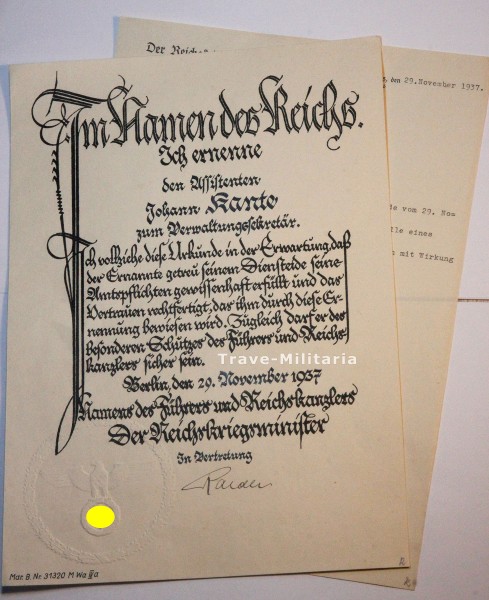 Der Reichs
, den 29.November 1937.
de vom 29. No=
lle eines
n mit Wirkung
Im Namen des Reichs.
Ich ernenne
den Assistenten
Johann Kante
zum Verwaltungssekretär.
Ich vollziehe diese Urkunde in der Erwartung, daß
der Ernannte getreu seinem Diensteide seine
Amtspflichten gewissenhaft erfüllt und das
Vertrauen rechtfertigt, das ihm durch diese Er-
nennung bewiesen wird. Zugleich darf er des
besonderen Schutzes des Führers und Reichs-
kanzlers sicher sein.
Trave-Militaria
Berlin, den 29. November 1937
Namens des Führers und Reichskanzlers
Der Reichskriegsminister
In Vertretung
Raeder
Mar. B. Nr. 31320 M Wa IIa